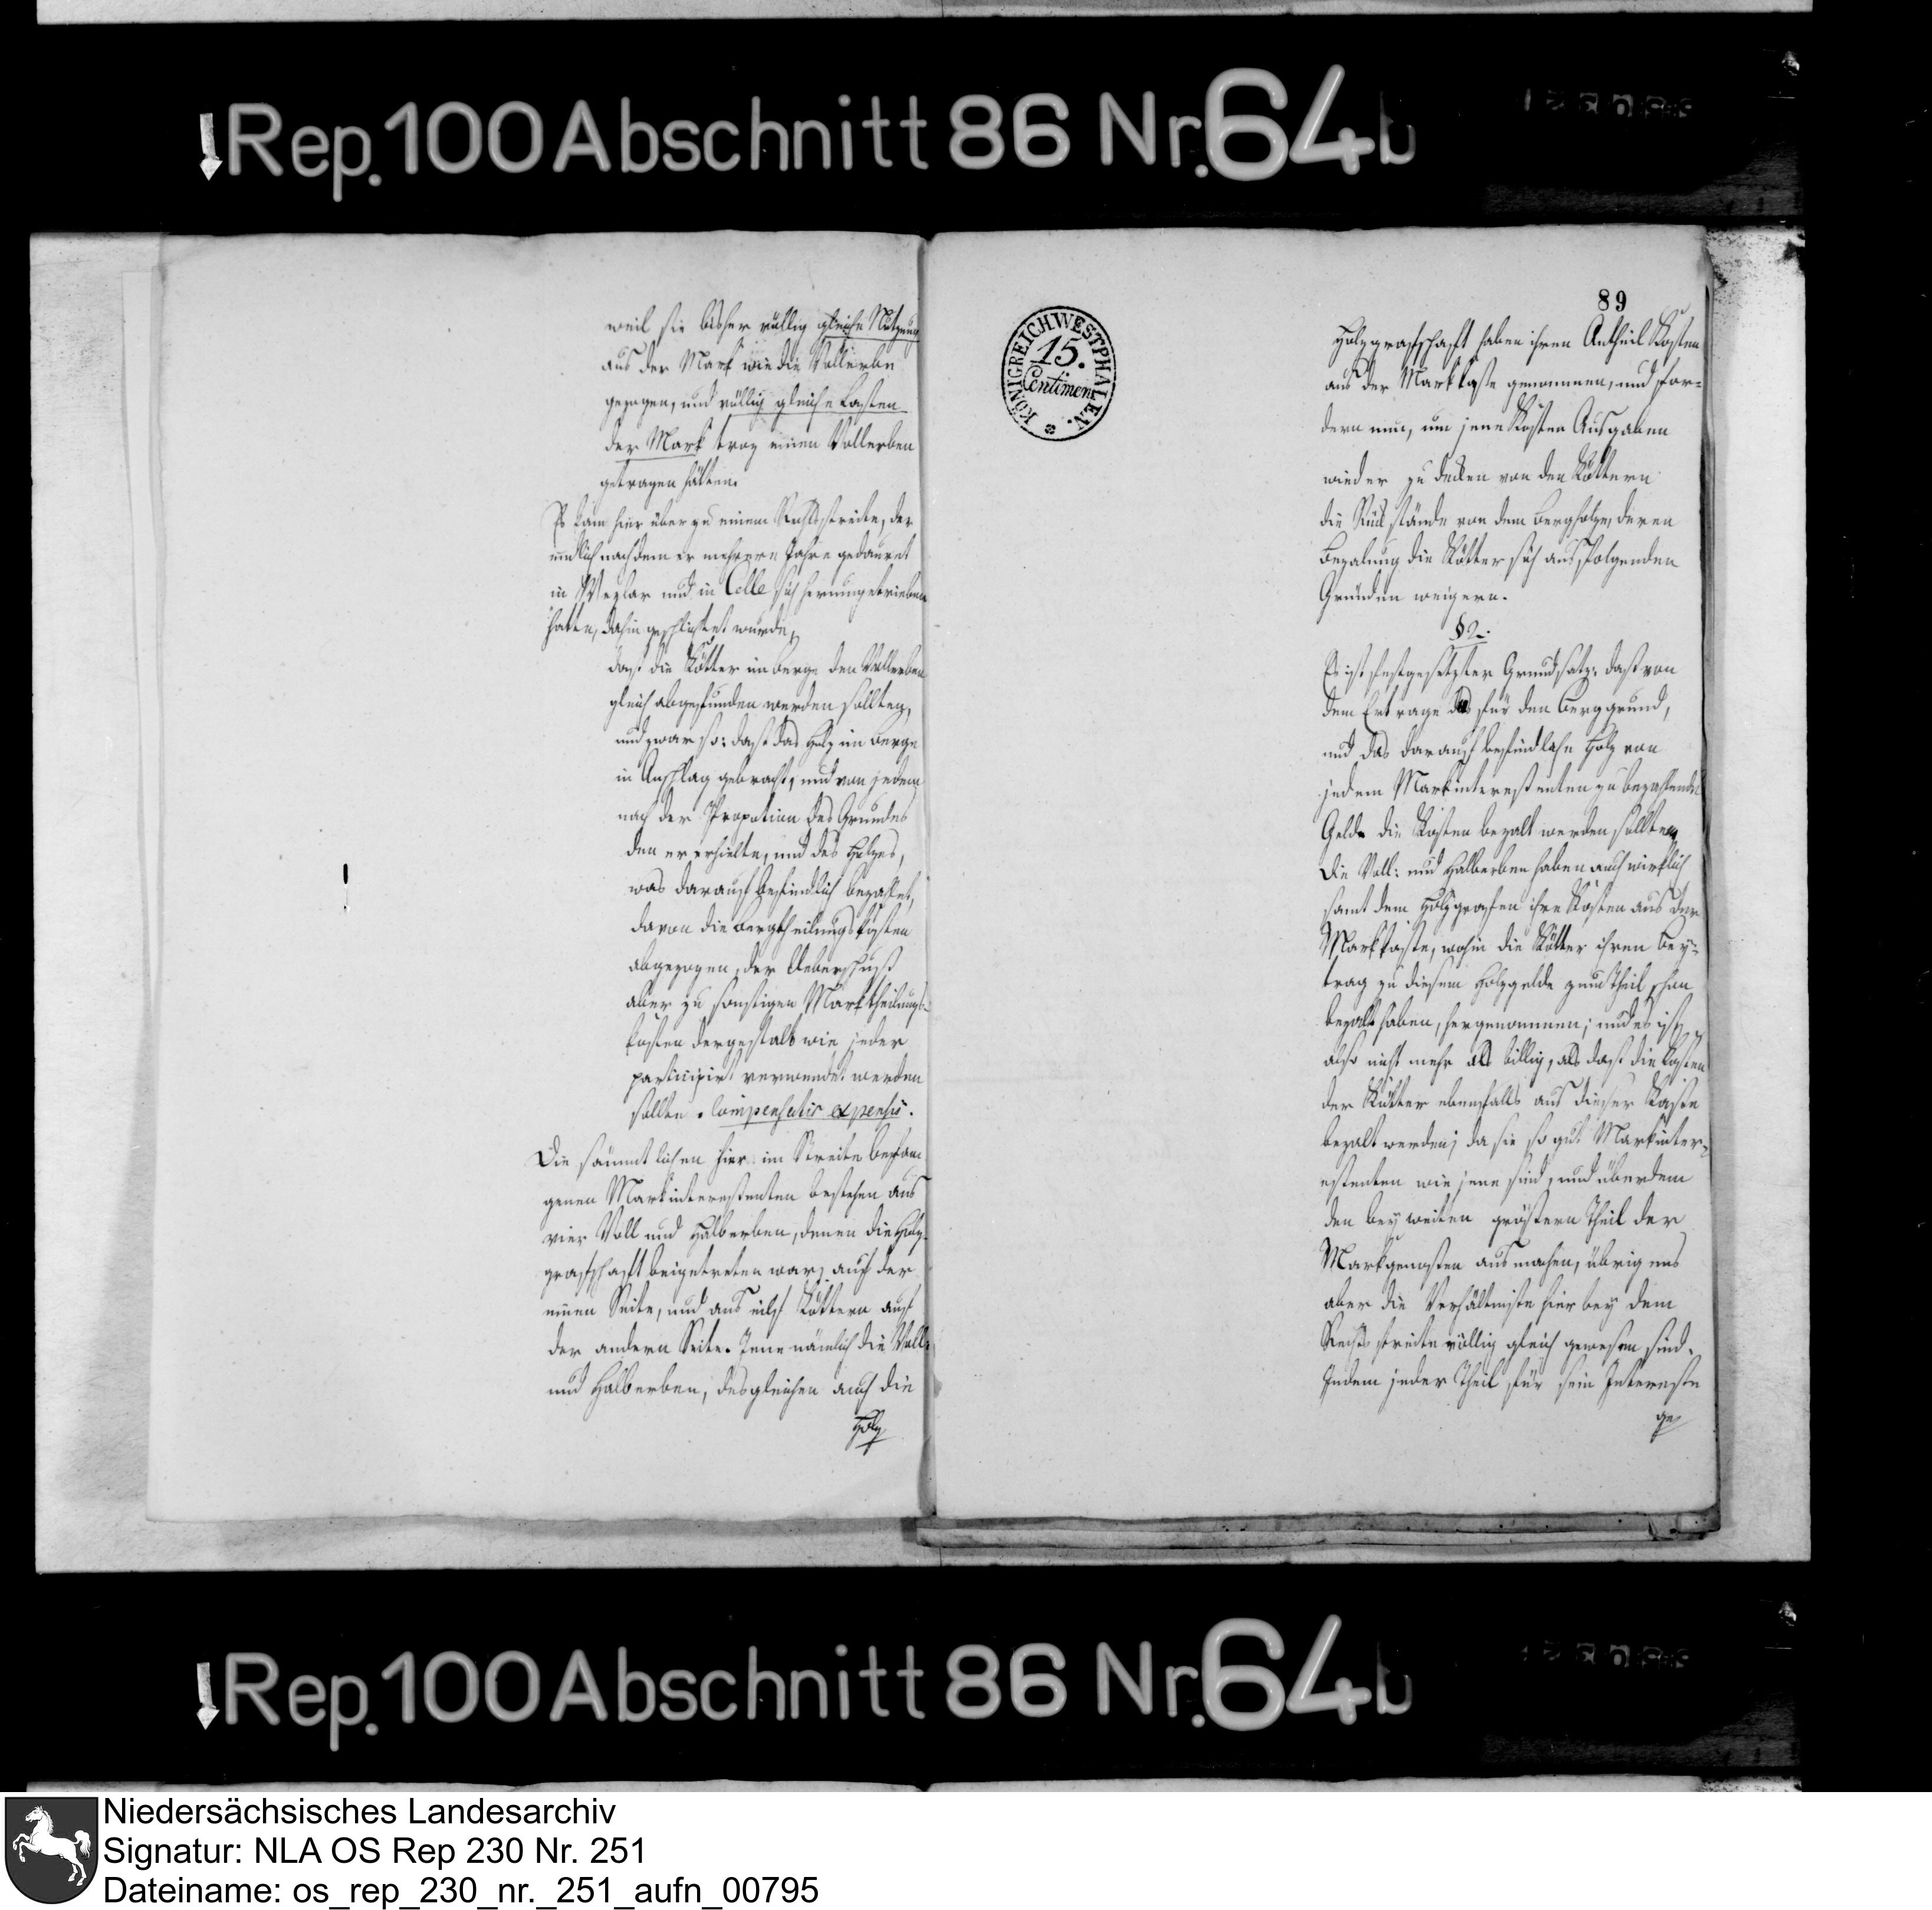 Rep. 100 Abschnitt 86 Nr. 64b
weil sie bisher völlig gleiche Nutzung
aus der Mark wie die Vollerbe
gezogen, und völlig gleiche Lasten
der Mark troz einen Vollerben
getragen hätten.
Es kam hier über zu einem Rechtsstreite, der
endlich nachdem er mehrere Jahre gedauret
in Wezlar und in Celle sich herumgetrieben
hatte, dahin geschlichtet wurde,
dass die Kötter im Berge den Vollerben
gleich abgefunden werden sollten,
und zwar so: dass das Holz im Berge
in Anschlag gebracht, und von jedem
nach der Propotion des Grundes
den er erhielte, und des Holzes,
was darauf befindlich bezahlet,
davon die Bergtheilungskosten
abgezogen, der Ueberschuss
aber zu sonstigen Marktheilungs-
kosten dergestalt wie jeder
participirt verwendet werden
sollte. Compensatis expensis.
Die sämmtlichen hier im Streite befan
genen Markinteressenten bestehen aus
vier Voll und Halberben, denen die Holz-
grafschaft beigetreten war, auf der
einen Seite, und aus eilf Köttern auf
der andern Seite. Jene nämlich die Voll-
und Halberben, desgleichen auch die
Holz
89
KÖNIGREICH WESTPHALEN.
15.
Centimen
Holzgrafschaft haben ihren Antheil Kosten
aus der Markkasse genommen, und for-
dern nun, um jene Kosten Ausgaben
wieder zu decken von den Köttern
die Rückstände von dem Bergholze, deren
Bezalung die Kötter sich aus folgenden
Gründen weigern.
§ 2.
Es ist festgesetzter Grundsatz, dass von
dem Ertrage des für den Berggrund,
und das darauf befindliche Holz von
jedem Markinteressenten zu bezahlende
Gelde die Kosten bezalt werden sollten
Die Voll: und Halberben haben auch wirklich
samt dem Holzgrafen ihre Kosten aus der
Markkasse, wohin die Kötter ihren Bey-
trag zu diesem Holzgelde zum Theil schon
bezalt haben, hergenommen; und es ist
also nicht mehr als billig, als dass die Kosten
der Kötter ebenfalls aus dieser Kasse
bezalt werden; da sie so gut Markinter-
essenten wie jene sind, und überdem
den bey weiten grössern Theil der
Markgenossen ausmachen, übrigens
aber die Verhältnisse hier bey dem
Rechtsstreite völlig gleich gewesen sind.
Indem jeder Theil für sein Interesse
ge
Rep. 100 Abschnitt 86 Nr. 64b
Niedersächsisches Landesarchiv
Signatur: NLA OS Rep 230 Nr. 251
Dateiname: os_rep_230_nr._251_aufn_00795